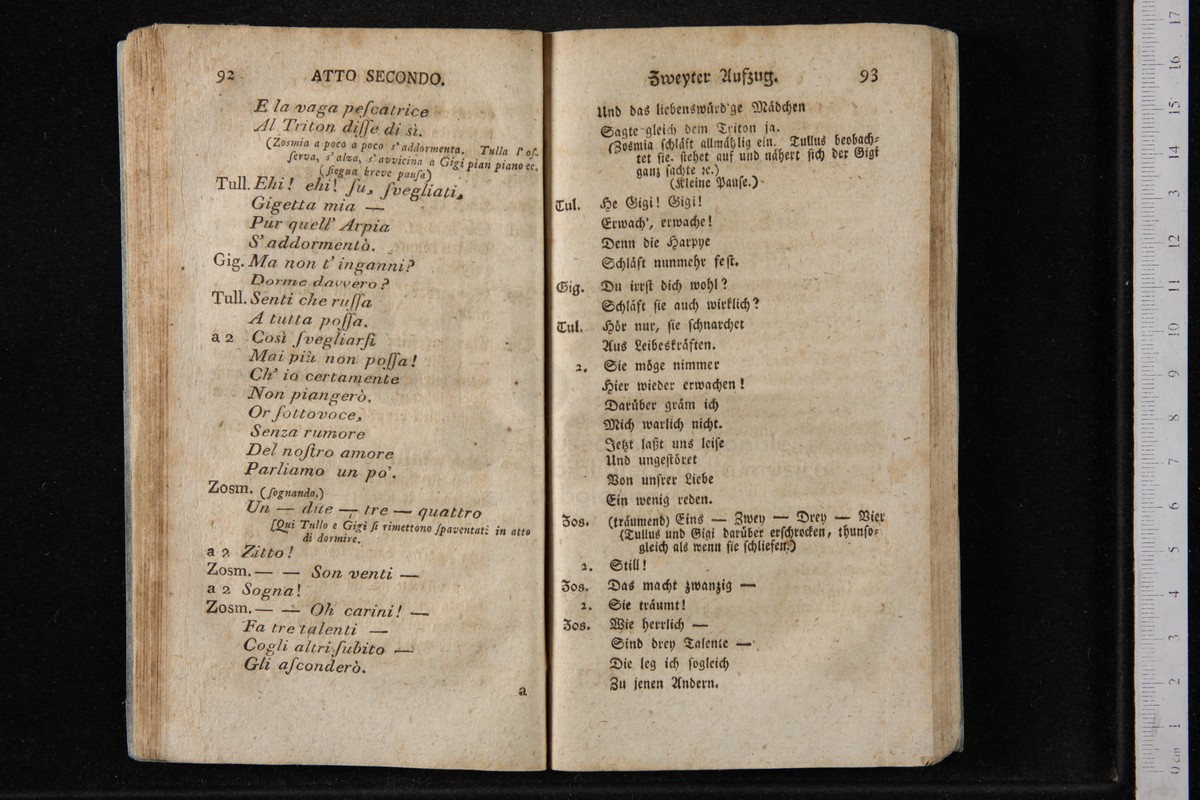 92 ATTO SECONDO.
E la vaga peſcatrice
Al Triton diſſe di sì.
(Zosmia a poco a poco s'addormenta. Tulla l'oſ-
ſerva, s'alza, s'avvicina a Gigi pian piano ec.
(ſiegua breve pauſa)
Tull. Ehi! ehi! ſu, ſvegliati,
Gigetta mia —
Pur quell' Arpia
S'addormentò.
Gig. Ma non t'inganni?
Dorme davvero?
Tull. Senti che ruſſa
A tutta poſſa.
a 2 Così ſvegliarſi
Mai più non poſſa!
Ch' io certamente
Non piangerò.
Or ſottovoce,
Senza rumore
Del noſtro amore
Parliamo un po'.
Zosm. (ſognando.)
Un — due — tre — quattro
[Qui Tullo e Gigi ſi rimettono ſpaventati in atto
di dormire.
a 2 Zitto!
Zosm. — — Son venti —
a 2 Sogna!
Zosm. — — Oh carini! —
Fa tre talenti —
Cogli altri ſubito —
Gli aſconderò.
a
Zweyter Aufzug. 93
Und das liebenswürd'ge Mädchen
Sagte gleich dem Triton ja.
(Zosmia ſchläft allmählig ein. Tullus beobach-
tet ſie, ſtehet auf und nähert ſich der Gigi
ganz ſachte ꝛc.)
(Kleine Pauſe.)
Tul. He Gigi! Gigi!
Erwach', erwache!
Denn die Harpye
Schläft nunmehr feſt.
Gig. Du irrſt dich wohl?
Schläft ſie auch wirklich?
Tul. Hör nur, ſie ſchnarchet
Aus Leibeskräften.
2. Sie möge nimmer
Hier wieder erwachen!
Darüber gräm ich
Mich warlich nicht.
Jetzt laßt uns leiſe
Und ungeſtöret
Von unſrer Liebe
Ein wenig reden.
Zos. (träumend) Eins — Zwey — Drey — Vier
(Tullus und Gigi darüber erſchrocken, thun ſo-
gleich als wenn ſie ſchliefen.)
2. Still!
Zos. Das macht zwanzig —
2. Sie träumt!
Zos. Wie herrlich —
Sind drey Talente —
Die leg ich ſogleich
Zu jenen Andern.